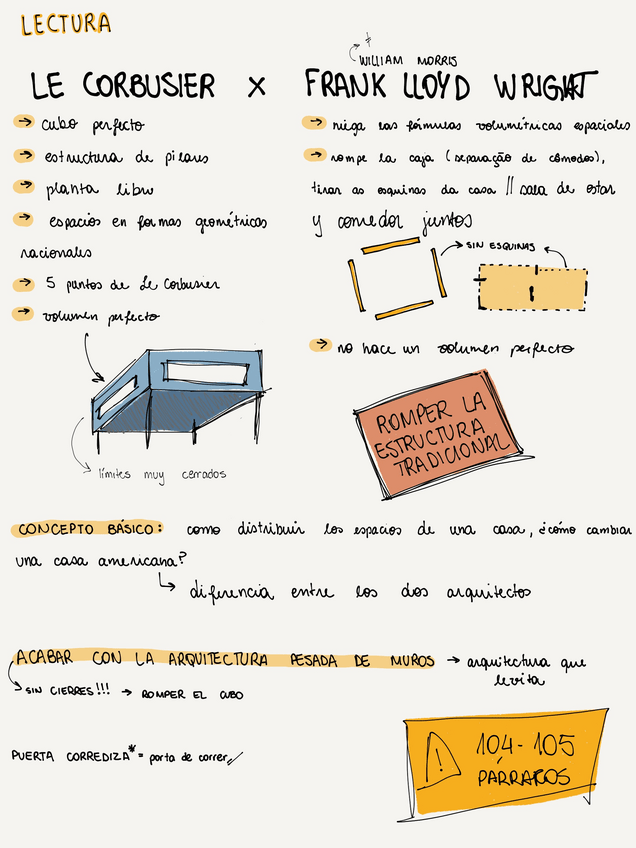 LECTURA
+ WILLIAM MORRIS
LE CORBUSIER x FRANK LLOYD WRIGHT
→ cubo perfecto
→ estructura de pilares
→ planta libre
→ espacios en formas geométricas
racionales
→ 5 puntos de Le Corbusier
→ volumen perfecto
límites muy cerrados
→ niega las fórmulas volumétricas espaciales
→ rompe la caja (separação de cômodos),
tirar as esquinas da casa // sala de estar
y comedor juntos
SIN ESQUINAS
→ no hace un volumen perfecto
ROMPER LA
ESTRUCTURA
TRADICIONAL
CONCEPTO BÁSICO: como distribuir los espacios de una casa, ¿cómo cambiar
una casa americana?
↳ diferencia entre los dos arquitectos
ACABAR CON LA ARQUITECTURA PESADA DE MUROS → arquitectura que
levita
SIN CIERRES!!! → ROMPER EL CUBO
PUERTA CORREDIZA* = porta de correr //
! 104-105
PÁRRAFOS